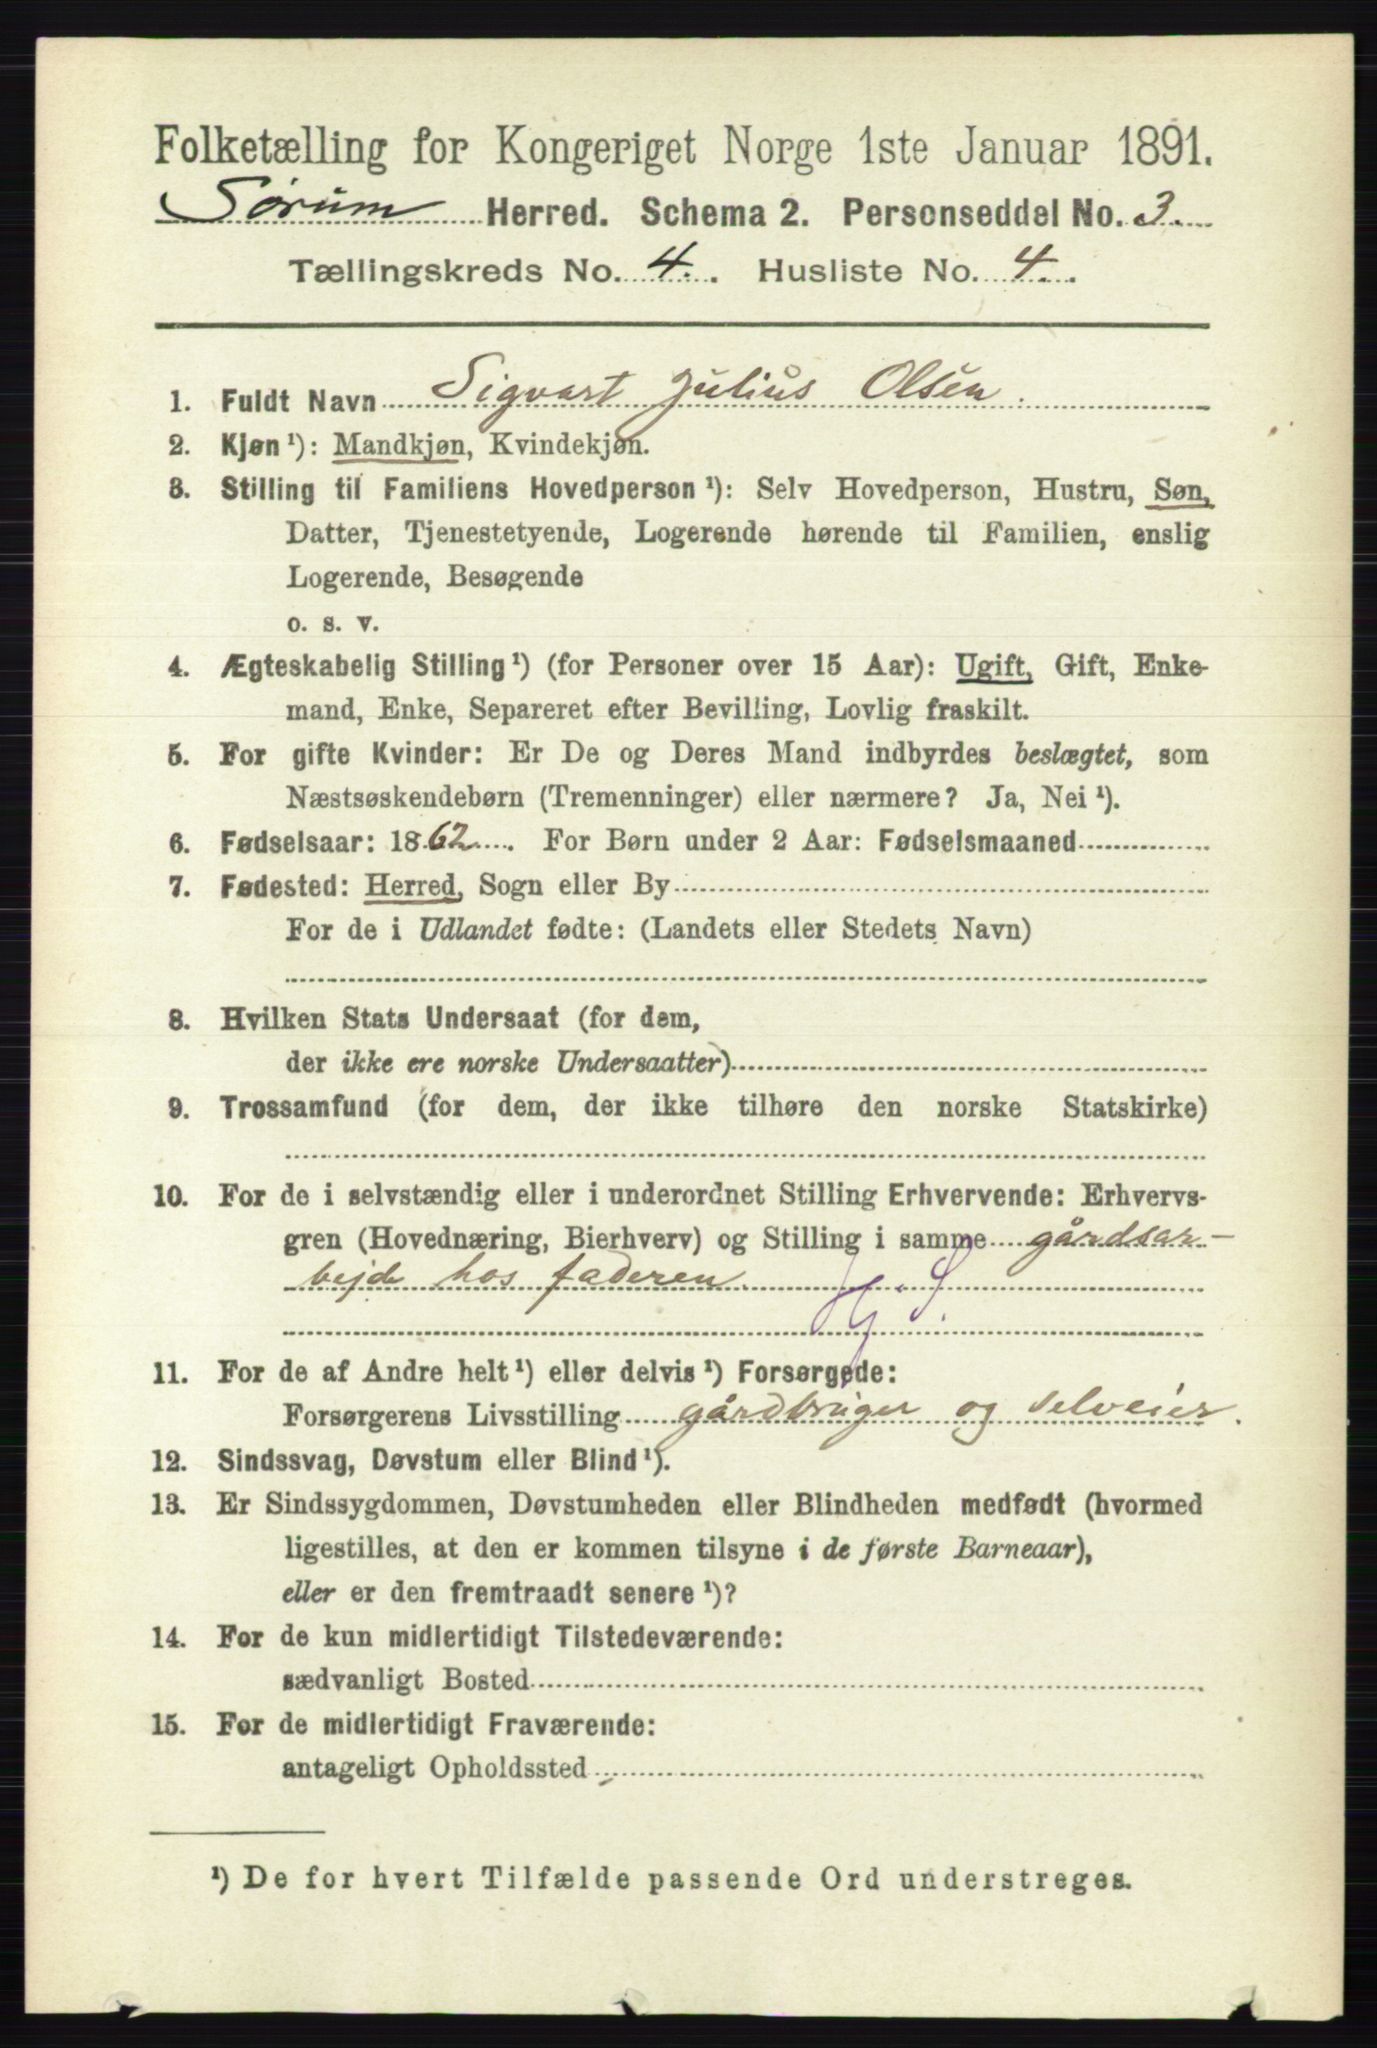 Folketælling for Kongeriget Norge 1ste Januar 1891.
Sørum Herred. Schema 2. Personseddel No. 3.
Tællingskreds No. 4. Husliste No. 4.
1. Fuldt Navn Sigvart Julius Olsen.
2. Kjøn ¹): Mandkjøn, Kvindekjøn.
3. Stilling til Familiens Hovedperson ¹): Selv Hovedperson, Hustru, Søn,
Datter, Tjenestetyende, Logerende hørende til Familien, enslig
Logerende, Besøgende
o. s. v.
4. Ægteskabelig Stilling ¹) (for Personer over 15 Aar): Ugift, Gift, Enke-
mand, Enke, Separeret efter Bevilling, Lovlig fraskilt.
5. For gifte Kvinder: Er De og Deres Mand indbyrdes beslægtet, som
Næstsøskendebørn (Tremenninger) eller nærmere? Ja, Nei ¹).
6. Fødselsaar: 1862. For Børn under 2 Aar: Fødselsmaaned
7. Fødested: Herred, Sogn eller By
For de i Udlandet fødte: (Landets eller Stedets Navn)
8. Hvilken Stats Undersaat (for dem,
der ikke ere norske Undersaatter)
9. Trossamfund (for dem, der ikke tilhøre den norske Statskirke)
10. For de i selvstændig eller i underordnet Stilling Erhvervende: Erhvervs-
gren (Hovednæring, Bierhverv) og Stilling i samme gårdsar-
bejde hos faderen.
11. For de af Andre helt ¹) eller delvis ¹) Forsørgede:
Forsørgerens Livsstilling gårdbruger og selveier.
12. Sindssvag, Døvstum eller Blind ¹).
13. Er Sindssygdommen, Døvstumheden eller Blindheden medfødt (hvormed
ligestilles, at den er kommen tilsyne i de første Barneaar),
eller er den fremtraadt senere ¹)?
14. For de kun midlertidigt Tilstedeværende:
sædvanligt Bosted
15. For de midlertidigt Fraværende:
antageligt Opholdssted
¹) De for hvert Tilfælde passende Ord understreges.